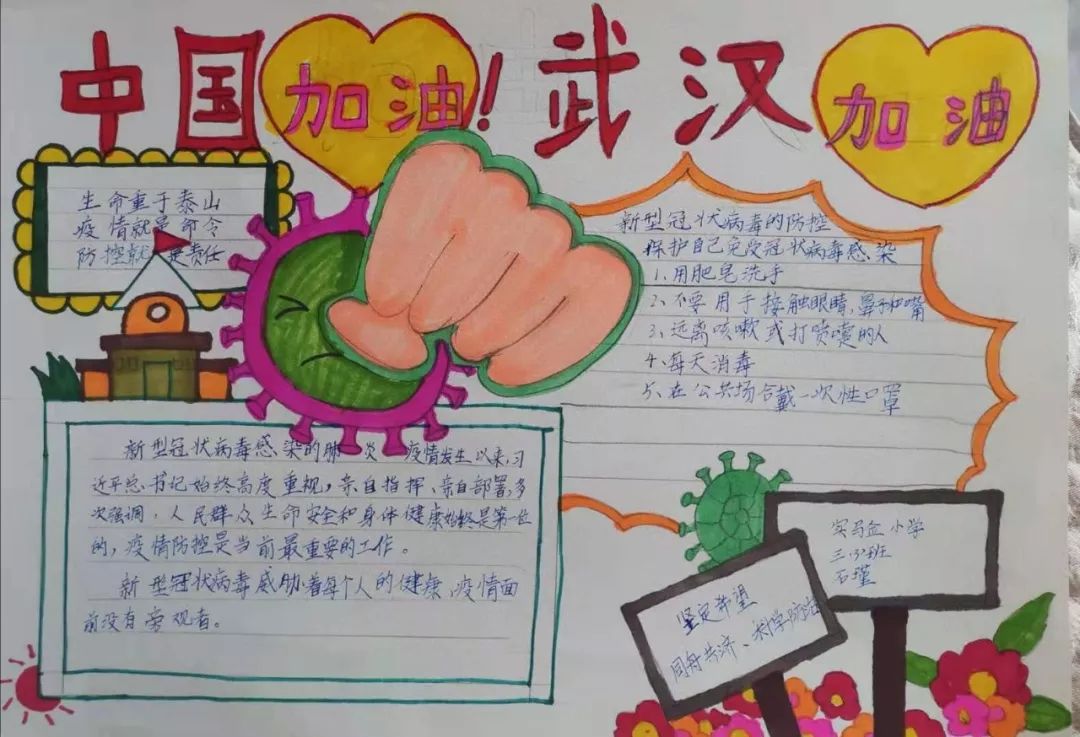 中国加油！武汉加油
生命重于泰山
疫情就是命令
防控就是责任
新型冠状病毒的防控
保护自己免受冠状病毒感染
1、用肥皂洗手
2、不要用手接触眼睛，鼻子和嘴
3、远离咳嗽或打喷嚏的人
4、每天消毒
5、在公共场合戴一次性口罩
新型冠状病毒感染的肺炎 疫情发生以来，习
近平总书记始终高度重视，亲自指挥、亲自部署，多
次强调，人民群众生命安全和身体健康始终是第一位
的，疫情防控是当前最重要的工作。
新型冠状病毒威胁着每个人的健康，疫情面
前没有旁观者。
小学
三(3)班
石瑾
坚定希望
同舟共济、科学防治